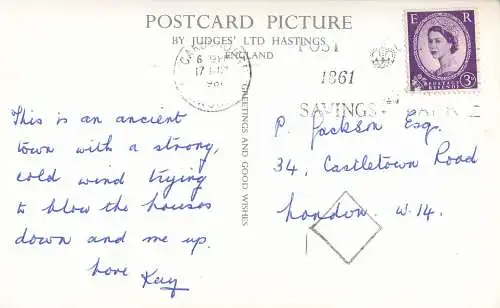 POSTCARD PICTURE
BY JUDGES' LTD HASTINGS
ENGLAND
GREETINGS AND GOOD WISHES
POST
1861
SAVINGS
E R
POSTAGE
REVENUE
3D
This is an ancient
town with a strong,
cold wind trying
to blow the houses
down and me up.
Love Kay
P. Jackson Esq.
34, Castletown Road
London. W.14.